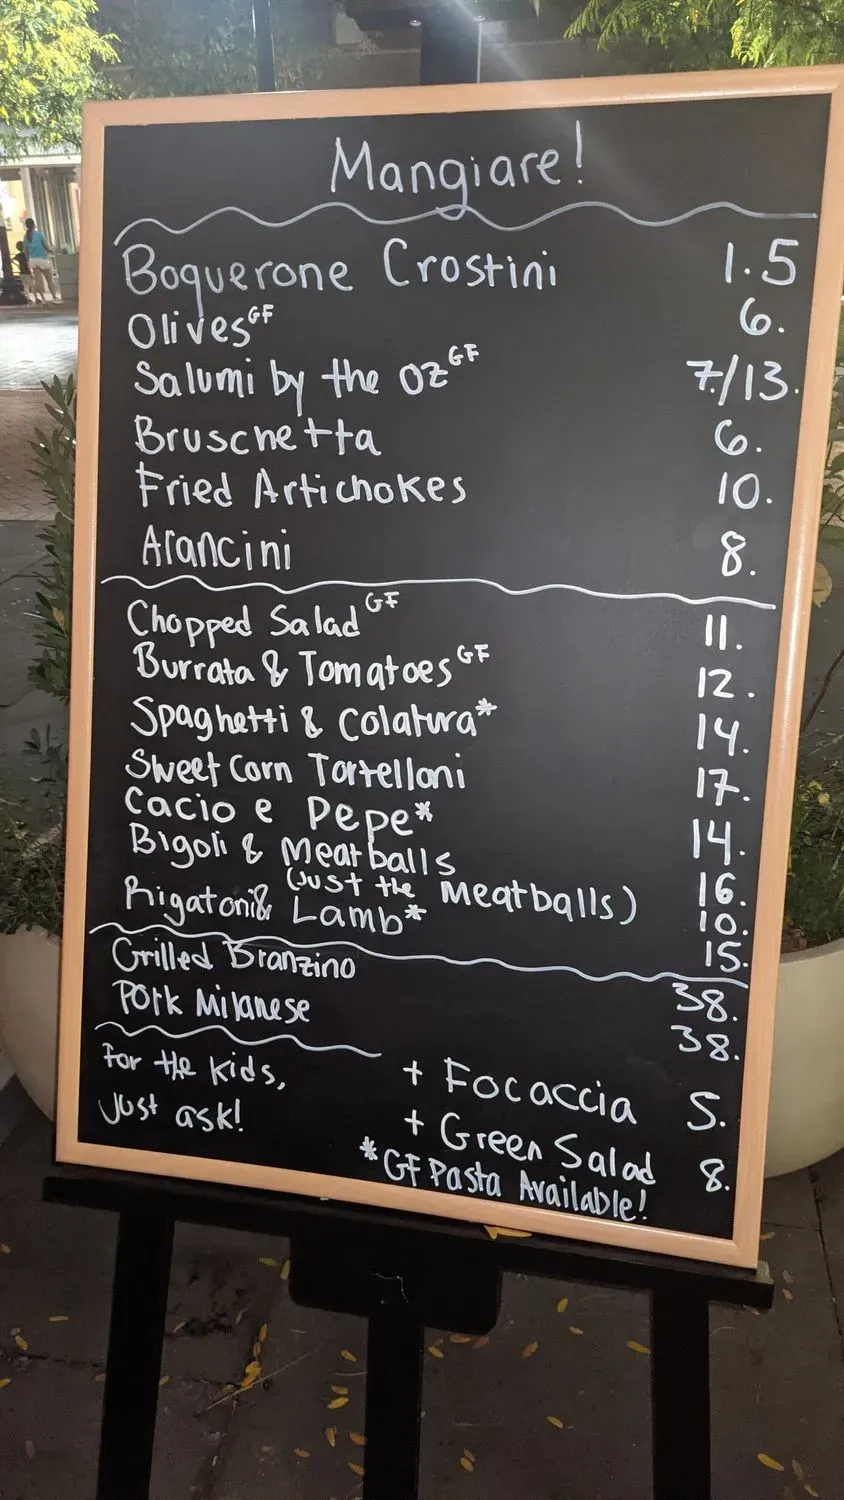 Mangiare!
Boquerone Crostini 1.5
Olives GF 6.
Salumi by the oz GF 7./13.
Bruschetta 6.
Fried Artichokes 10.
Arancini 8.
Chopped Salad GF 11.
Burrata & Tomatoes GF 12.
Spaghetti & Colatura* 14.
Sweet Corn Tortelloni 17.
Cacio e Pepe* 14.
Bigoli & Meatballs 16.
(Just the Meatballs) 10.
Rigatoni & Lamb* 15.
Grilled Branzino 38.
Pork Milanese 38.
For the kids,
Just ask!
+ Focaccia 5.
+ Green Salad 8.
*GF Pasta Available!